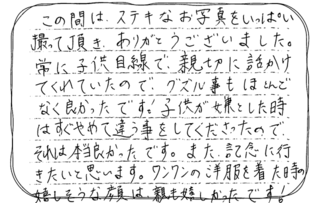 この間は、ステキなお写真をいっぱい
撮って頂き、ありがとうございました。
常に子供目線で、親切に話かけ
てくれていたので、グズル事もほとんど
なく良かったです！子供が嫌とした時
はすぐやめて違う事をしてくださったので、
それは本当良かったです。また、記念に行
きたいと思います。ワンワンのお洋服を着た時の
嬉しそうな顔は、親も嬉しかったです！